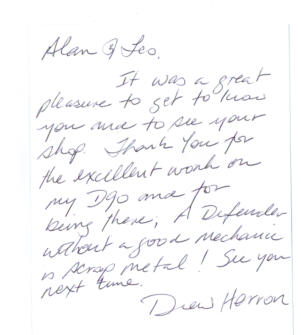 Alan & Leo,
It was a great
pleasure to get to know
you and to see your
shop. Thank You for
the excellent work on
my D90 and for
being there, A Defender
without a good mechanic
is scrap metal! See you
next time.
Drew Herron